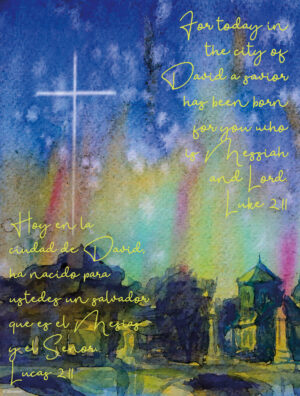 For today in
the city of
David a savior
has been born
for you who
is Messiah
and Lord.
Luke 2:11
Hoy en la
ciudad de David,
ha nacido para
ustedes un salvador
que es el Mesías
y el Señor.
Lucas 2:11